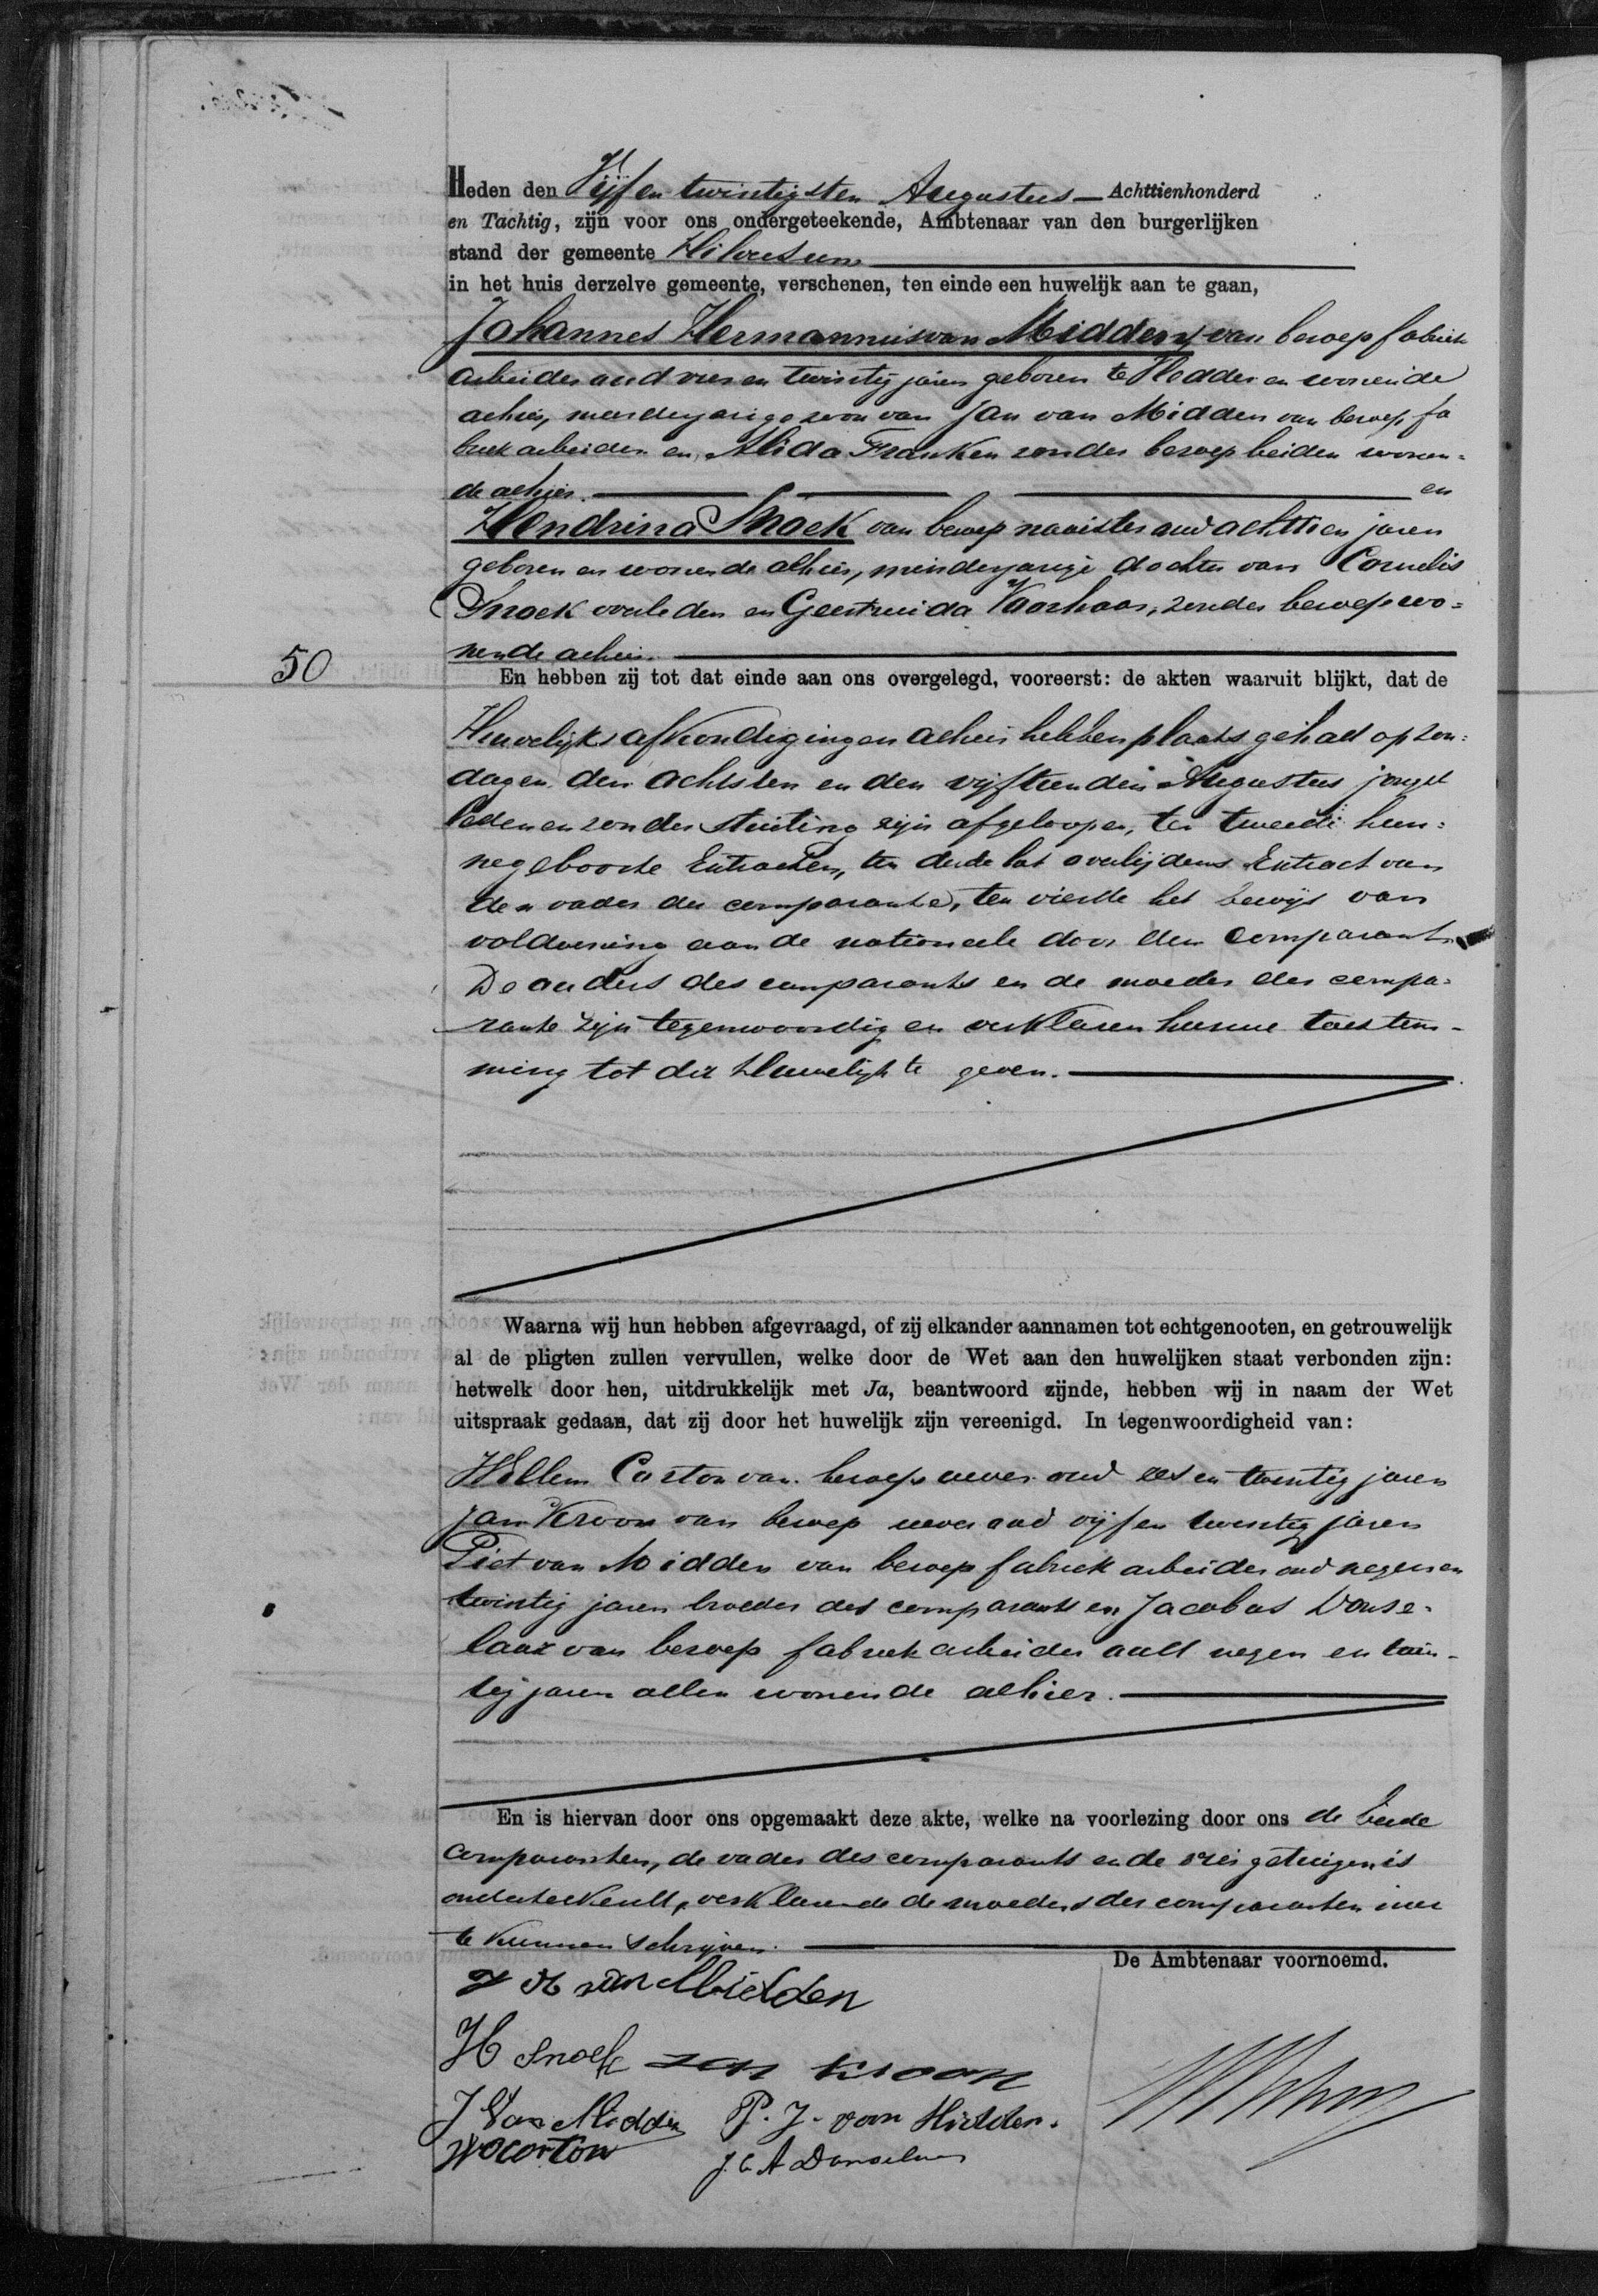 Heden den Vijf en twintigsten Augustus Achttienhonderd
en Tachtig, zijn voor ons ondergeteekende, Ambtenaar van den burgerlijken
stand der gemeente Hilversum
in het huis derzelve gemeente, verschenen, ten einde een huwelijk aan te gaan,
Johannes Hermannus van Midden van beroep fabriek
arbeider oud vier en twintig jaren geboren te Hodder en wonende
alhier, meerderjarige zoon van Jan van Midden van beroep fa
briek arbeider en Alida Franken zonder beroep beiden wonen=
de alhier. en
Hendrina Snoek van beroep naaister oud achttien jaren
geboren en wonende alhier, minderjarige dochter van Cornelis
Snoek overleden en Geertruida Voorhaar, zonder beroep wo=
nende alhier.
50
En hebben zij tot dat einde aan ons overgelegd, vooreerst: de akten waaruit blijkt, dat de
Huwelijks afkondigingen alhier hebben plaats gehad op zon=
dagen den achtsten en den vijftienden Augustus jongst
leden en zonder stuiting zijn afgeloopen, ten tweede hun=
ne geboorte Extracten, ten derde het overlijdens Extract van
den vader der comparante, ten vierde het bewijs van
voldoening aan de nationale door den comparant
De ouders des comparants en de moeder der compa=
rante zijn tegenwoordig en verklaren hunne toestem=
ming tot dit Huwelijk te geven.
Waarna wij hun hebben afgevraagd, of zij elkander aannamen tot echtgenooten, en getrouwelijk
al de pligten zullen vervullen, welke door de Wet aan den huwelijken staat verbonden zijn:
hetwelk door hen, uitdrukkelijk met Ja, beantwoord zijnde, hebben wij in naam der Wet
uitspraak gedaan, dat zij door het huwelijk zijn vereenigd. In tegenwoordigheid van:
Willem Corton van beroep wever oud zes en twintig jaren
Jan Kroon van beroep wever oud vijf en twintig jaren
Piet van Midden van beroep fabriek arbeider oud negen en
twintig jaren broeder des comparants en Jacobus Donse=
laar van beroep fabriek arbeider oud negen en twin=
tig jaren allen wonende alhier.
En is hiervan door ons opgemaakt deze akte, welke na voorlezing door ons de beide
comparanten, de vader des comparants en de getuigen is
onderteekend, verklarende de moeders der comparanten niet
te kunnen schrijven.
De Ambtenaar voornoemd.
J H van Midden
H Snoek Jan Kroon
J Van Midden P. J. van Midden.
W Corton J. C A Donselaar